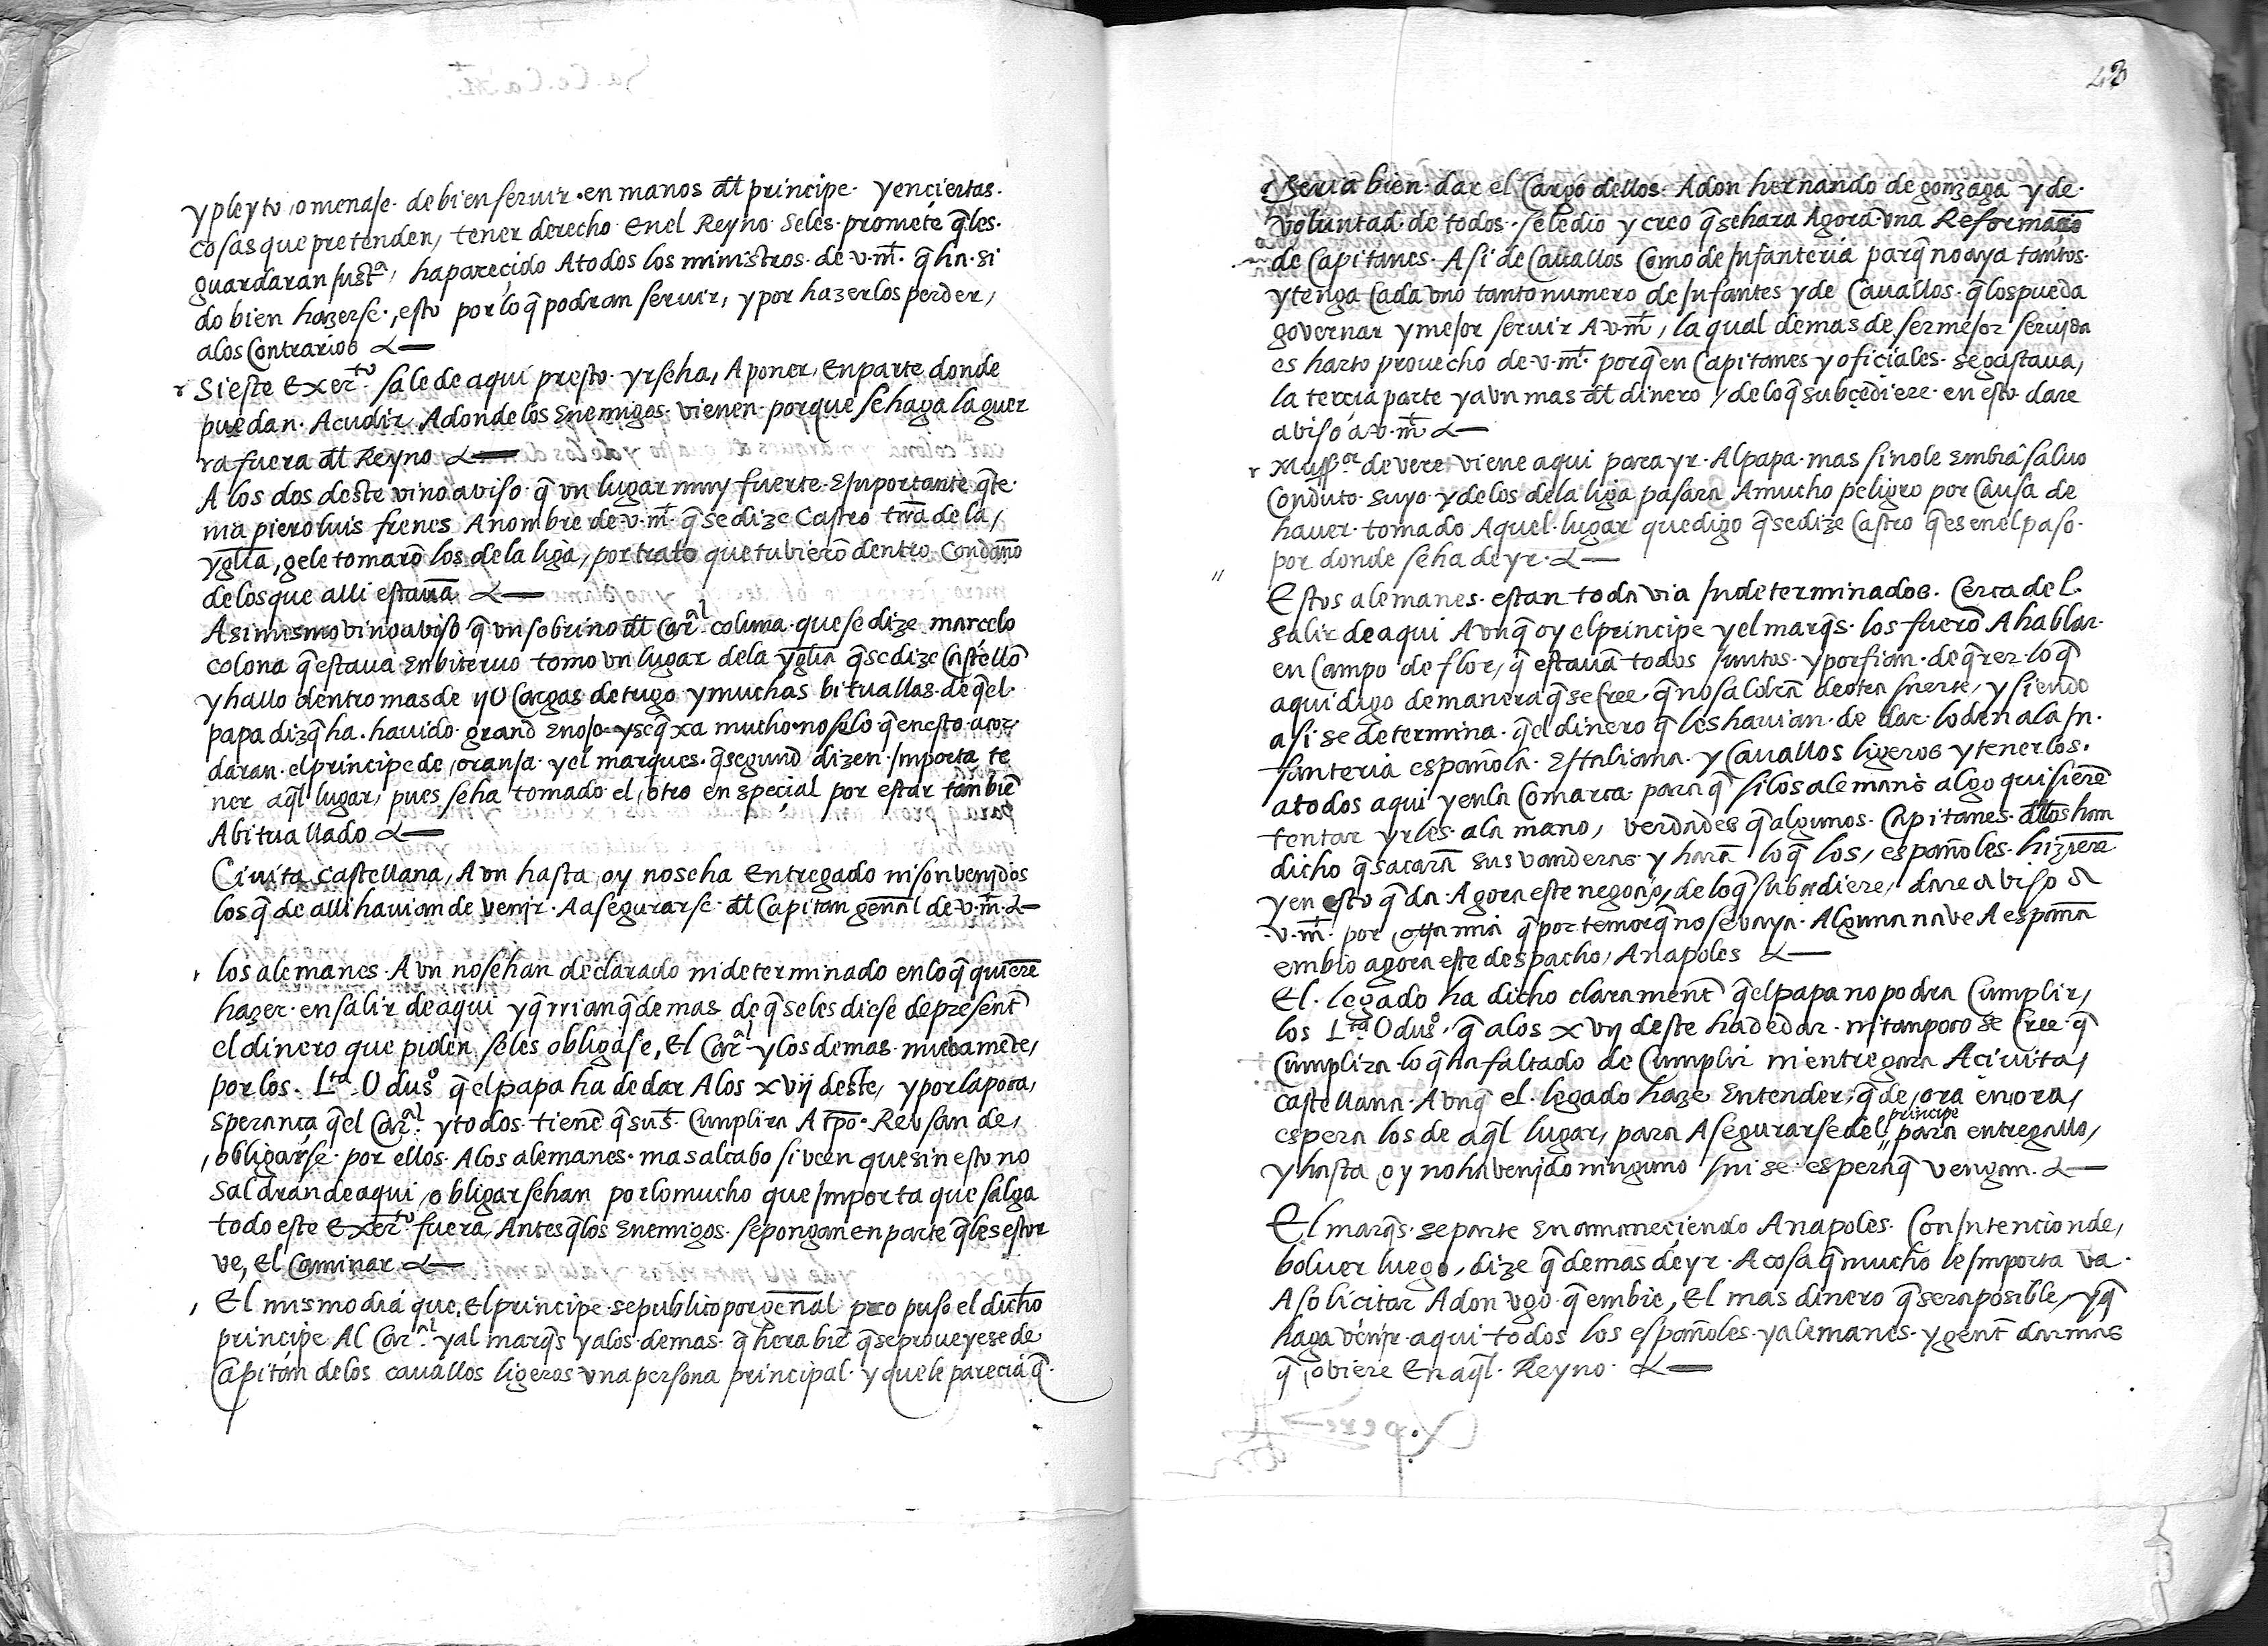 y pleyto, omenaje. de bien servir. en manos dl principe. y en ciertas.
cosas que pretenden, tener derecho En el Reyno Seles. promete q̃ les.
guardaran Justª, ha pareçido A todos los ministros. de v.mt. q̃ ha. si
do bien hazerse., esto por lo q̃ podran servir, y por hazer los perder,
a los Contrarios
Si este Exerto. sale de aqui presto. yr se ha, A poner, En parte donde
puedan. Acudir. Adonde los Enemigos. vienen. porque se haga la guer
ra fuera dl Reyno
A los dos deste vino aviso. q̃ vn lugar muy fuerte. E Inportante q̃ te.
nia piero luis frenes A nombre de v.mt. q̃ se dize Castro trra de la,
yglia, gele tomarõ los de la liga, por trato que tubierõ dentro Con daño
de los que alli estavã
Asi mismo vino aviso q̃ vn sobrino dl Carl. coluna. que se dize marcelo
colona q̃ estava En biteruo tomo vn lugar de la yglia q̃ se dize Castellõ
y hallo dentro mas de Cargas de trigo y muchas bituallas. de q̃ el.
papa diz q̃ ha. havido. grand Enojo. y se q̃xa mucho. no se lo q̃ en esto. acor.
daran. el principe de, oranja. y el marques. q̃ segund dizen. Importa te
ner aql lugar, pues se ha tomado el, otro en speçial por estar tanbiẽ
Abituallado
Civita castellana, A vn hasta, oy no se ha Entregado ni son venidos
los q̃ de alli havian de venir. A asegurarse. dl Capitan genal de v.mt.
los alemanes. A vn no se han declarado ni determinado en lo q̃ quierẽ
hazer. en salir de aqui y q̃rrian q̃ demas de q̃ se les diese de present
el dinero que piden se les obligase, El Carl. y los demas. nuevamẽte,
por los. Lta. U duso q̃ el papa ha de dar A los xvij deste, y por la poca,
sperança q̃ el Carl. y todos. tienẽ q̃ su st. Cumplira A tpo. Reusan de,
, obligarse. por ellos. A los alemanes. mas al cabo si veen que sin esto no
saldran de aqui, obligar se han por lo mucho que Importa que salga
todo este Exerto. fuera, Antes q̃ los Enemigos. se pongan en parte q̃ les estor
ve, El Caminar
El mismo dia que, el principe. se publico por genal propuso el dicho
principe Al Carl. y al marqs y a los. demas. q̃ hera biẽ q̃ se proveyese de
Capitan de los cavallos ligeros vna persona principal. y que le parecia q̃.
48
Seria bien. dar el Cargo dellos. A don hernando de gonzaga y de.
voluntad. de todos. se le dio y creo q̃ se hara Agora. vna Reformaçio
de Capitanes. Asi de Cavallos Como de Infanteria parq̃ no aya tantos.
y tenga Cada vno tanto numero de Infantes y de Cavallos. q̃ los pueda
governar y mejor servir A v.mt, la qual demas de ser mejor servida
es harto provecho de v.mt. porq̃ en Capitanes y oficiales. se gastava,
la terçia parte y a vn mas dl dinero, de lo q̃ subçediere. en esto. dare
abiso a v.mt
Mussor. de vere. viene aqui para yr. Al papa. mas si no le Embiã salvo
Conduto. suyo. y de los de la liga pasara A mucho peligro por Causa de
haver. tomado Aquel. lugar que digo q̃ se dize Castro q̃ es en el paso.
por donde se ha de yr.
Estos alemanes. estan toda via Indeterminados. Cerca del.
salir de aqui A vnq̃ oy el principe y el marqs. los fuerõ A hablar.
en Campo de flor, q̃ estavã todos Juntos. y porfian. de q̃rer. lo q̃
aqui digo de manera q̃ se Cree. q̃ no saldrã de otra suerte, y siendo
asi se determina. q̃ el dinero q̃ les havian. de dar. lo den a la In.
fanteria española. E Italiana. y Cavallos ligeros y tener los.
a todos aqui y en la Comarca. para q̃ si los alemanẽs algo quisierẽ
tentar yrles. a la mano, verdad es q̃ algunos. Capitanes. dllos han
dicho q̃ sacarã sus vanderas y harã lo q̃ los, españoles. hizierẽ
y en esto q̃da. Agora este negoçio, de lo q̃ subçediere, dare aviso a
v.mt. por, otra mia q̃ por temor q̃ no se vaya. Alguna nave A españa
embio agora este despacho, A napoles
El. legado ha dicho clarament q̃ el papa no podra Cumplir,
los Lta. U duso. q̃ a los xvij deste ha de dar. ni tanpoco se Cree q̃
Cumplira. lo q̃ ha faltado de Cumplir ni entregara A civita,
castellana. A vnq̃ el. legado haze Entender. q̃ de, ora en ora,
espera los de aql lugar, para Asegurarse del principe para entregallo,
y hasta, oy no ha venido ninguno ni se. espera q̃ vengan.
El marqs. se parte En amaneçiendo A napoles. Con Intencion de,
bolver luego, dize q̃ demas de yr. A cosa q̃ mucho le Importa va.
A soliçitar A don vgo. q̃ embie, El mas dinero q̃ sera posible, y q̃
haga venir. aqui todos los españoles. y alemanes. y gent darmas
q̃, obiere En aql. Reyno.